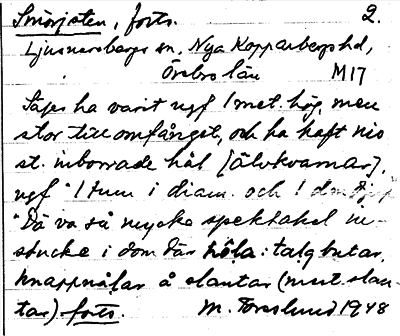 Smörjsten, forts. 2.
Ljusnarsbergs sn, Nya Kopparbergs hd,
Örebro län M17
Säges ha varit ugf 1 met. hög, men
stor till omfånget, och ha haft nio
st. inborrade hål [älvkvarnar],
ugf 1 tum i diam. och 1 dm djup
"Dä va så mycke spektakel ne-
stucke i dom där håla: talgbitar,
knappnålar å slantar (mest slan-
tar) forts. M. Foreslund 1948